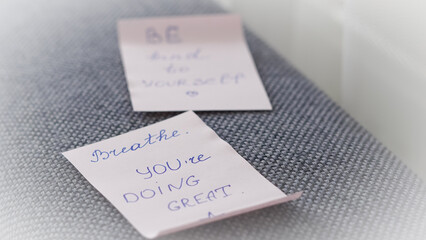 BE
kind
to
YOURSELF
Breathe.
YOU're
DOING
GREAT.